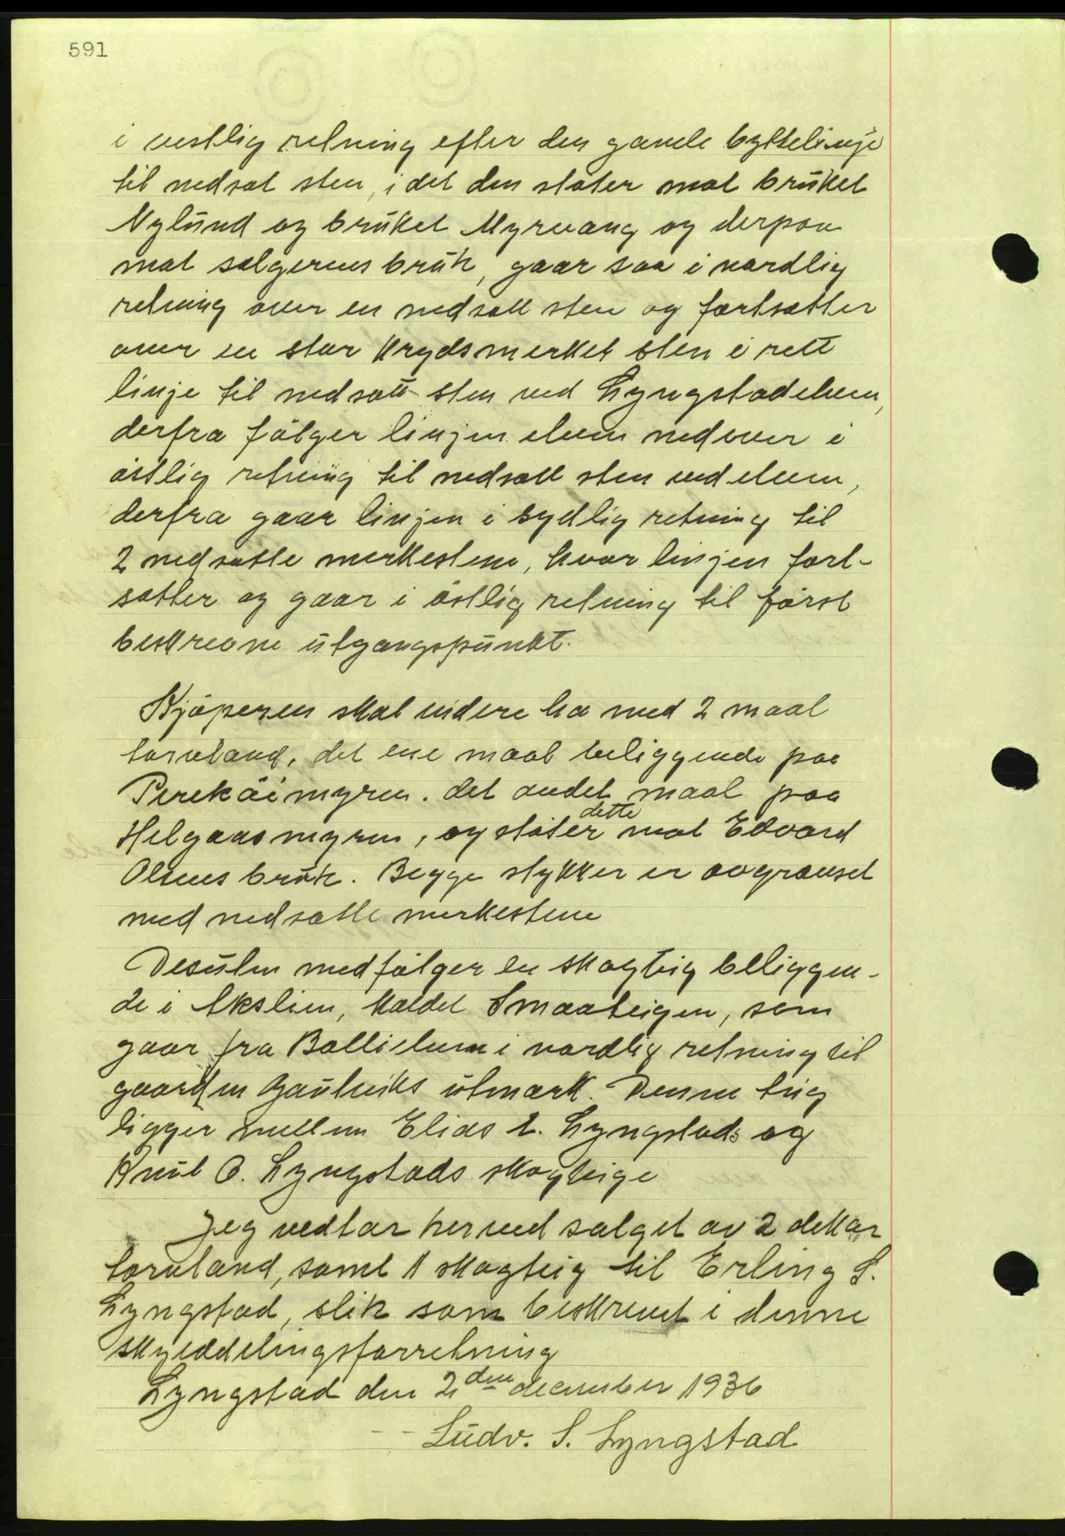 591
i vestlig retning efter den gamle byttelinje
til nedsat sten, i det den støter mot bruket
Nylund og bruket Myrvang og derpaa
mot selgerens bruk, gaar saa i nordlig
retning over en nedsatt sten og fortsetter
over en stor krydsmerket sten i rett
linje til nedsatt sten ved Lyngstadelven,
derfra følger linjen elven nedover i
østlig retning til nedsatt sten ved elven,
derfra gaar linjen i sydlig retning til
2 nedsatte merkestene, hvor linjen fort-
setter og gaar i østlig retning til først
beskrevne utgangspunkt.
Kjøperen skal videre ha med 2 maal
torvland, det ene maal beliggende paa
myren. det andet maal paa
Helgaasmyren, og støter dette mot Edvard
Olsens bruk. Begge stykker er avgrenset
med nedsatte merkestene
Desuten medfølger en skogteig beliggen-
de i Akslien, kaldet Smaateigen, som
gaar fra i nordlig retning til
gaarden Gautviks utmark. Denne teig
ligger mellem Elias L. Lyngstads og
Knut O. Lyngstads skogteige
Jeg vedtar herved salget av 2 dekar
torvland, samt 1 skogteig til Erling S.
Lyngstad, slik som beskrevet i denne
skylddelingsforretning
Lyngstad den 2den december 1936
Ludv. S. Lyngstad